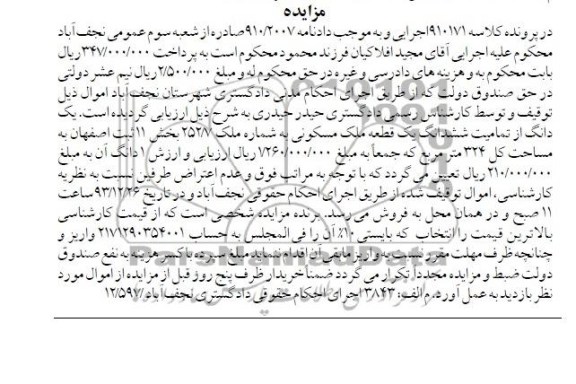 مزایده
در پرونده کلاسه ۹۱۰۱۷۱اجرایی و به موجب دادنامه ۹۱۰/۲۰۰۷صادره از شعبه سوم عمومی نجف آباد
محکوم علیه اجرایی آقای مجید افلاکیان فرزند محمود محکوم است به پرداخت ۳۴۷/۰۰۰/۰۰۰ ریال
بابت محکوم به و هزینه های دادرسی و غیره در حق محکوم له و مبلغ ۲/۵۰۰/۰۰۰ ریال نیم عشر دولتی
در حق صندوق دولت که از طریق اجرای احکام مدنی دادگستری شهرستان نجف آباد اموال ذیل
توقیف و توسط کارشناس رسمی دادگستری حیدر حیدری به شرح ذیل ارزیابی گردیده است. یک
دانگ از تمامیت ششدانگ یک قطعه ملک مسکونی به شماره ملک ۲۵۲۸۷ بخش ۱۱ ثبت اصفهان به
مساحت کل ۳۲۴ متر مربع که جمعا به مبلغ ۷۲۶۰/۰۰۰/۰۰۰ ریال ارزیابی و ارزش ۱ دانگ آن به مبلغ
۲۱۰/۰۰۰/۰۰۰ ریال تعیین می گردد که با توجه به مراتب فوق و عدم اعتراض طرفین نسبت به نظریه
کارشناسی، اموال توقیف شده از طریق اجرای احکام حقوقی نجف آباد و در تاریخ ۹۳/۱۲/۲۶ ساعت
۱۱ صبح و در همان محل به فروش می رسد. برنده مزایده شخصی است که از قیمت کارشناسی
بالاترین قیمت را انتخاب که بایستی ۱۰٪ آن را فی المجلس به حساب ۲۱۷۱۲۹۰۳۵۴۰۰۱ واریز و
چنانچه ظرف مهلت مقرر نسبت به واریز مابقی آن اقدام ننماید مبلغ سپرده با کسر هزینه به نفع صندوق
دولت ضبط و مزایده مجددا تکرار می گردد ضمنا خریدار ظرف پنج روز قبل از مزایده از اموال مورد
نظر بازدید به عمل آورد. م الف: ۳۸۴۳ اجرای احکام حقوقی دادگستری نجف آباد/۱۲/۵۹۷